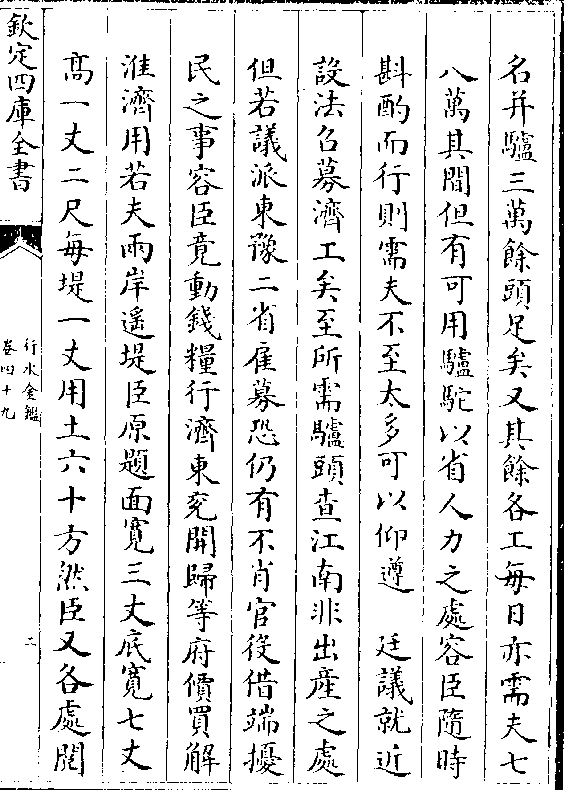 名并驢三萬餘頭足矣又其餘各工每日亦需夫七
八萬其間但有可用驢駝以省人力之處容臣隨時
斟酌而行則需夫不至太多可以仰遵　廷議就近
設法召募濟工矣至所需驢頭查江南非出産之處
但若議派東豫二省雇募恐仍有不肖官役借端擾
民之事容臣竟動錢糧行濟東兖開歸等府價買解
淮濟用若夫兩岸遥堤臣原題面寛三丈底寛七丈
髙一丈二尺每堤一丈用土六十方然臣又各處閲
欽定四庫全書
行水金鑑
卷四十九
二